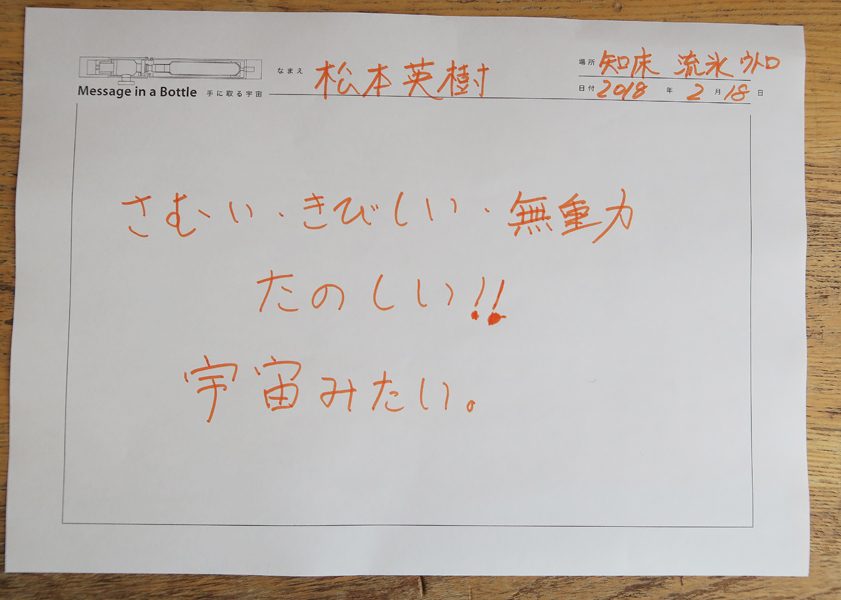 なまえ 松本英樹
場所 知床 流氷 ウトロ
Message in a Bottle 手に取る宇宙
日付 2018 年 2 月 18 日
さむい・きびしい・無重力
たのしい!!
宇宙みたい。